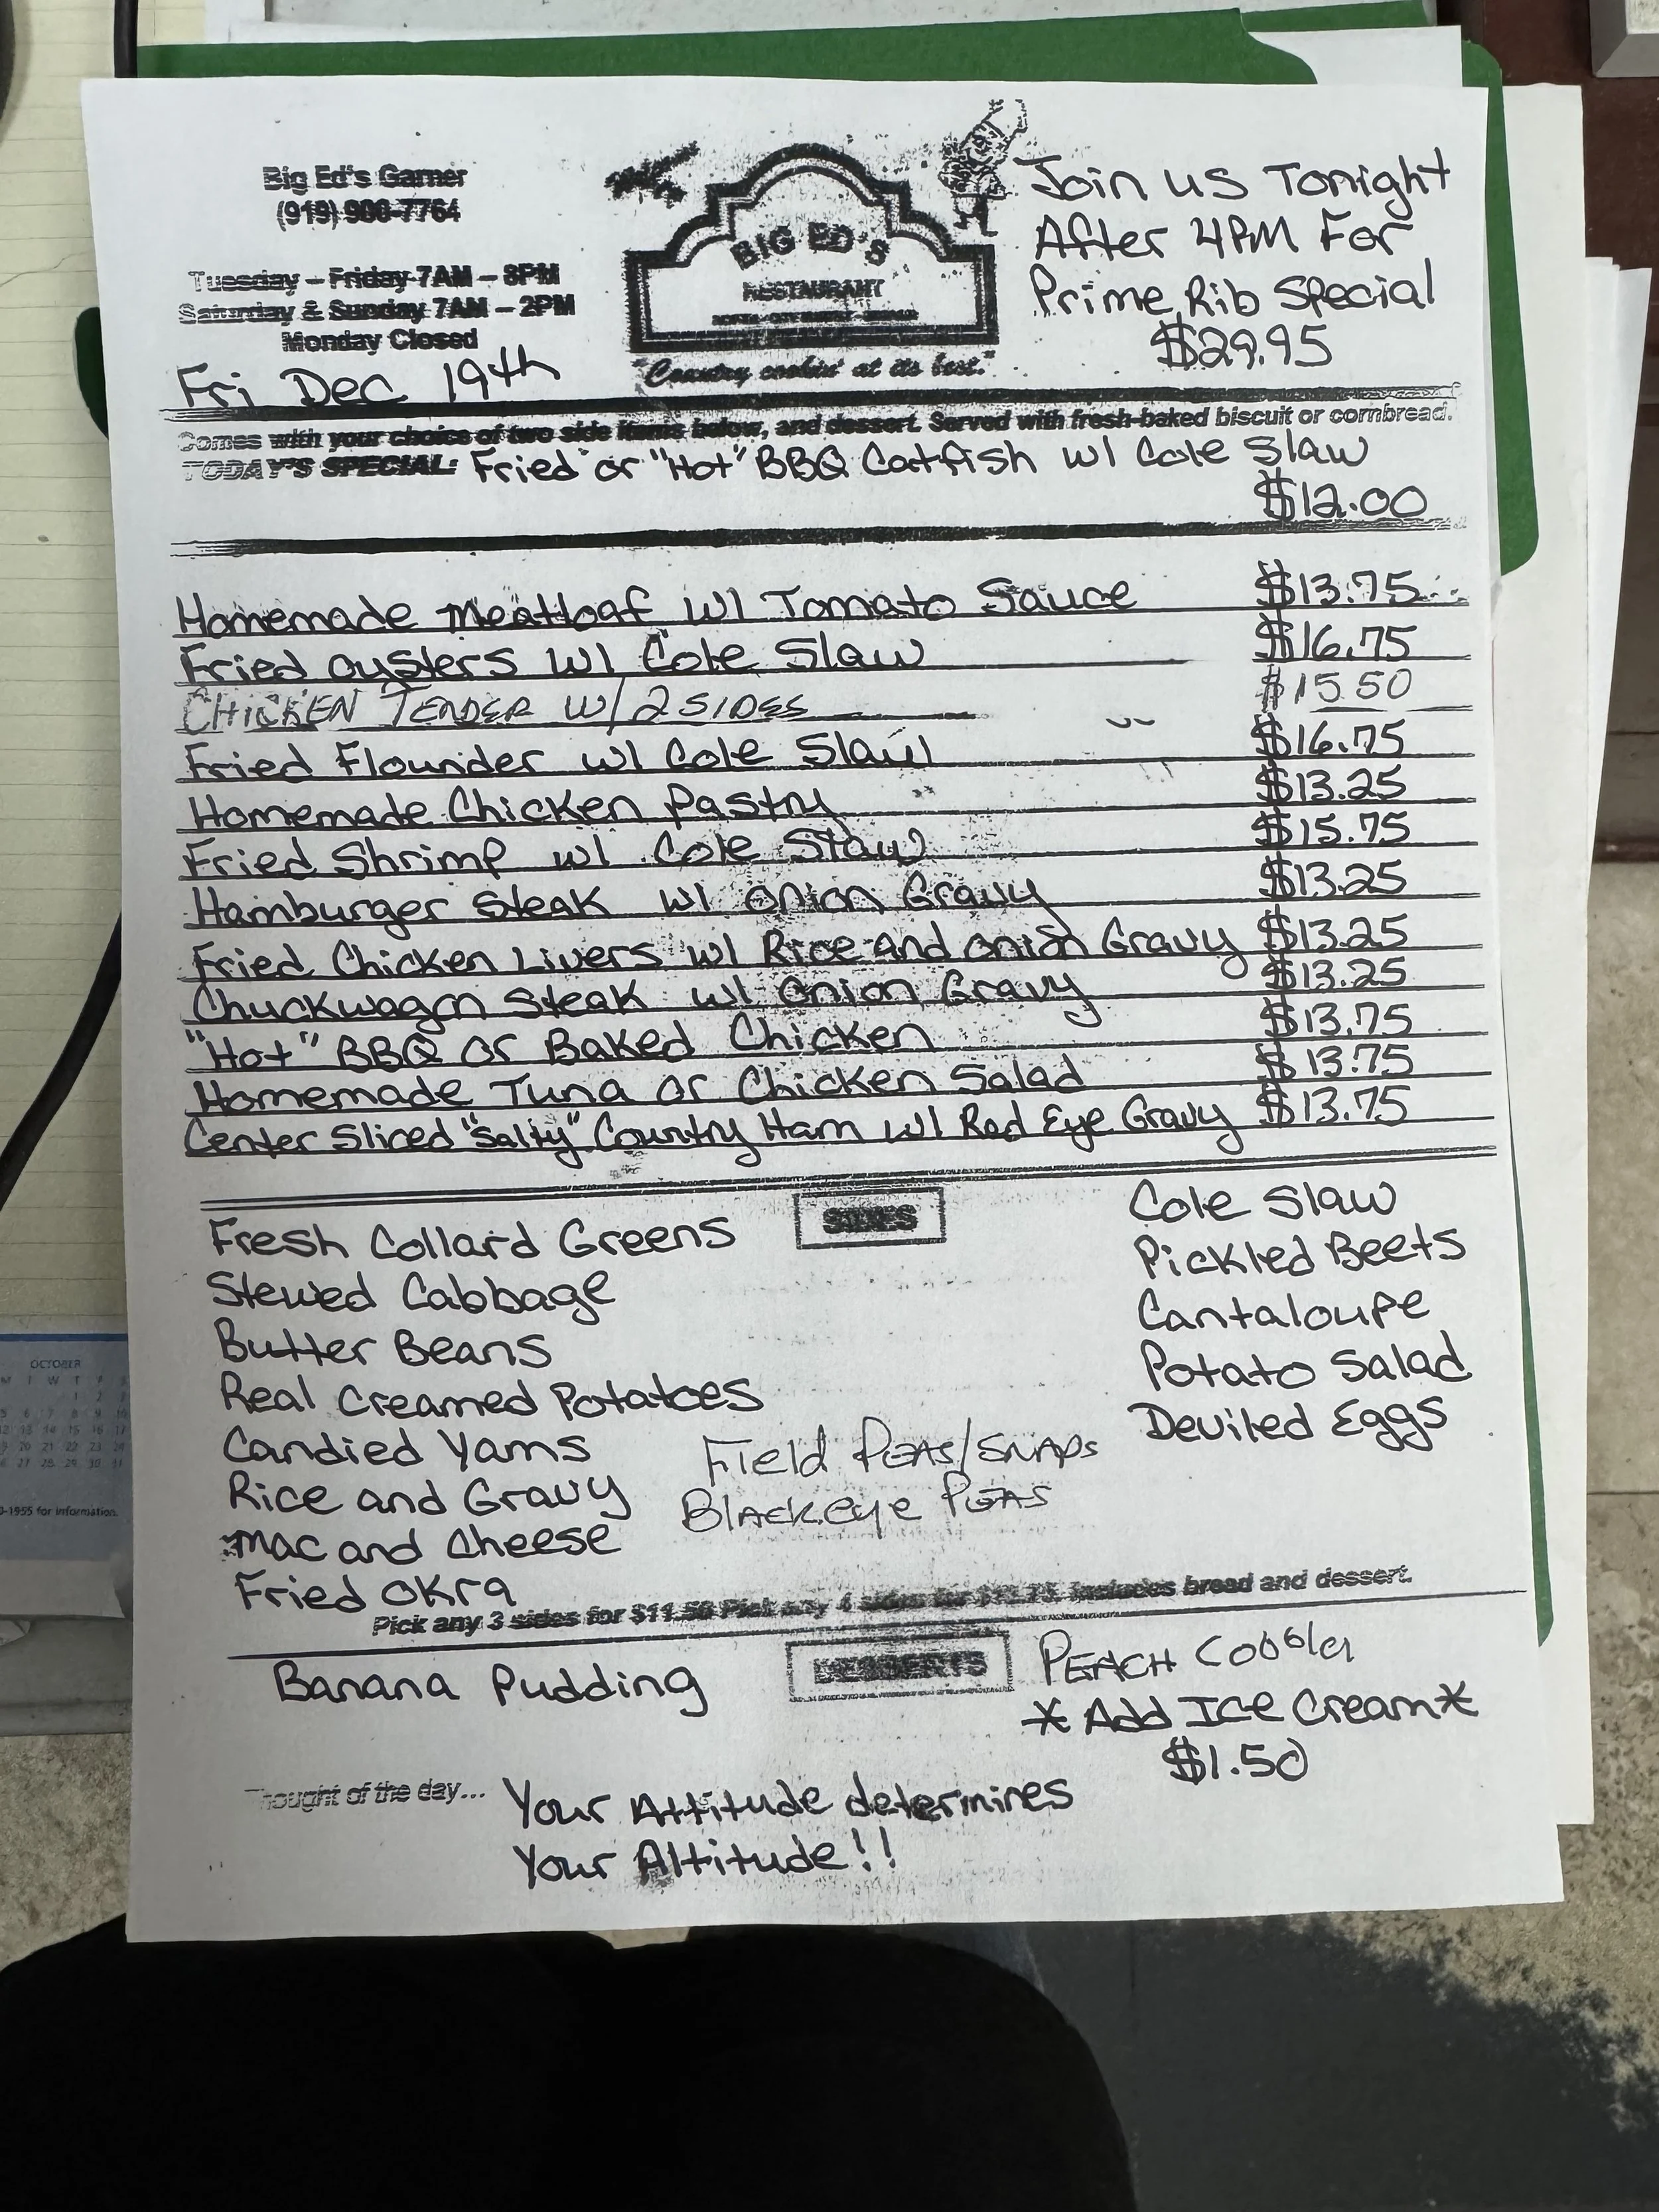 Big Ed's Garner
(919) 900-7764
Tuesday – Friday 7AM – 8PM
Saturday & Sunday 7AM – 2PM
Monday Closed
Fri Dec 19th
BIG ED'S
RESTAURANT
"Country cookin' at its best."
Join us Tonight
After 4PM For
Prime Rib Special
$29.95
Comes with your choice of two side items below, and dessert. Served with fresh-baked biscuit or cornbread.
TODAY'S SPECIAL: Fried or "Hot" BBQ Catfish w/ Cole Slaw
$12.00
Homemade Meatloaf w/ Tomato Sauce $13.75
Fried Oysters w/ Cole Slaw $16.75
CHICKEN TENDER W/ 2 SIDES $15.50
Fried Flounder w/ Cole Slaw $16.75
Homemade Chicken Pastry $13.25
Fried Shrimp w/ Cole Slaw $15.75
Hamburger Steak w/ Onion Gravy $13.25
Fried Chicken Livers w/ Rice and Onion Gravy $13.25
Chuckwagon Steak w/ Onion Gravy $13.25
"Hot" BBQ or Baked Chicken $13.75
Homemade Tuna or Chicken Salad $13.75
Center Sliced "Salty" Country Ham w/ Red Eye Gravy $13.75
SIDES
Fresh Collard Greens
Stewed Cabbage
Butter Beans
Real Creamed Potatoes
Candied Yams
Rice and Gravy
Mac and Cheese
Fried Okra
Field PEAS/SNAPS
BlackEye PEAS
Cole Slaw
Pickled Beets
Cantaloupe
Potato Salad
Deviled Eggs
Pick any 3 sides for $11.50 Pick any 4 sides for includes bread and dessert.
DESSERTS
Banana Pudding
PEACH Cobbler
*Add Ice Cream*
$1.50
Thought of the day... Your Attitude determines
Your Altitude!!
OCTOBER
M T W T F S
1 2 3
5 6 7 8 9 10
12 13 14 15 16 17
19 20 21 22 23 24
26 27 28 29 30 31
0-1955 for information.